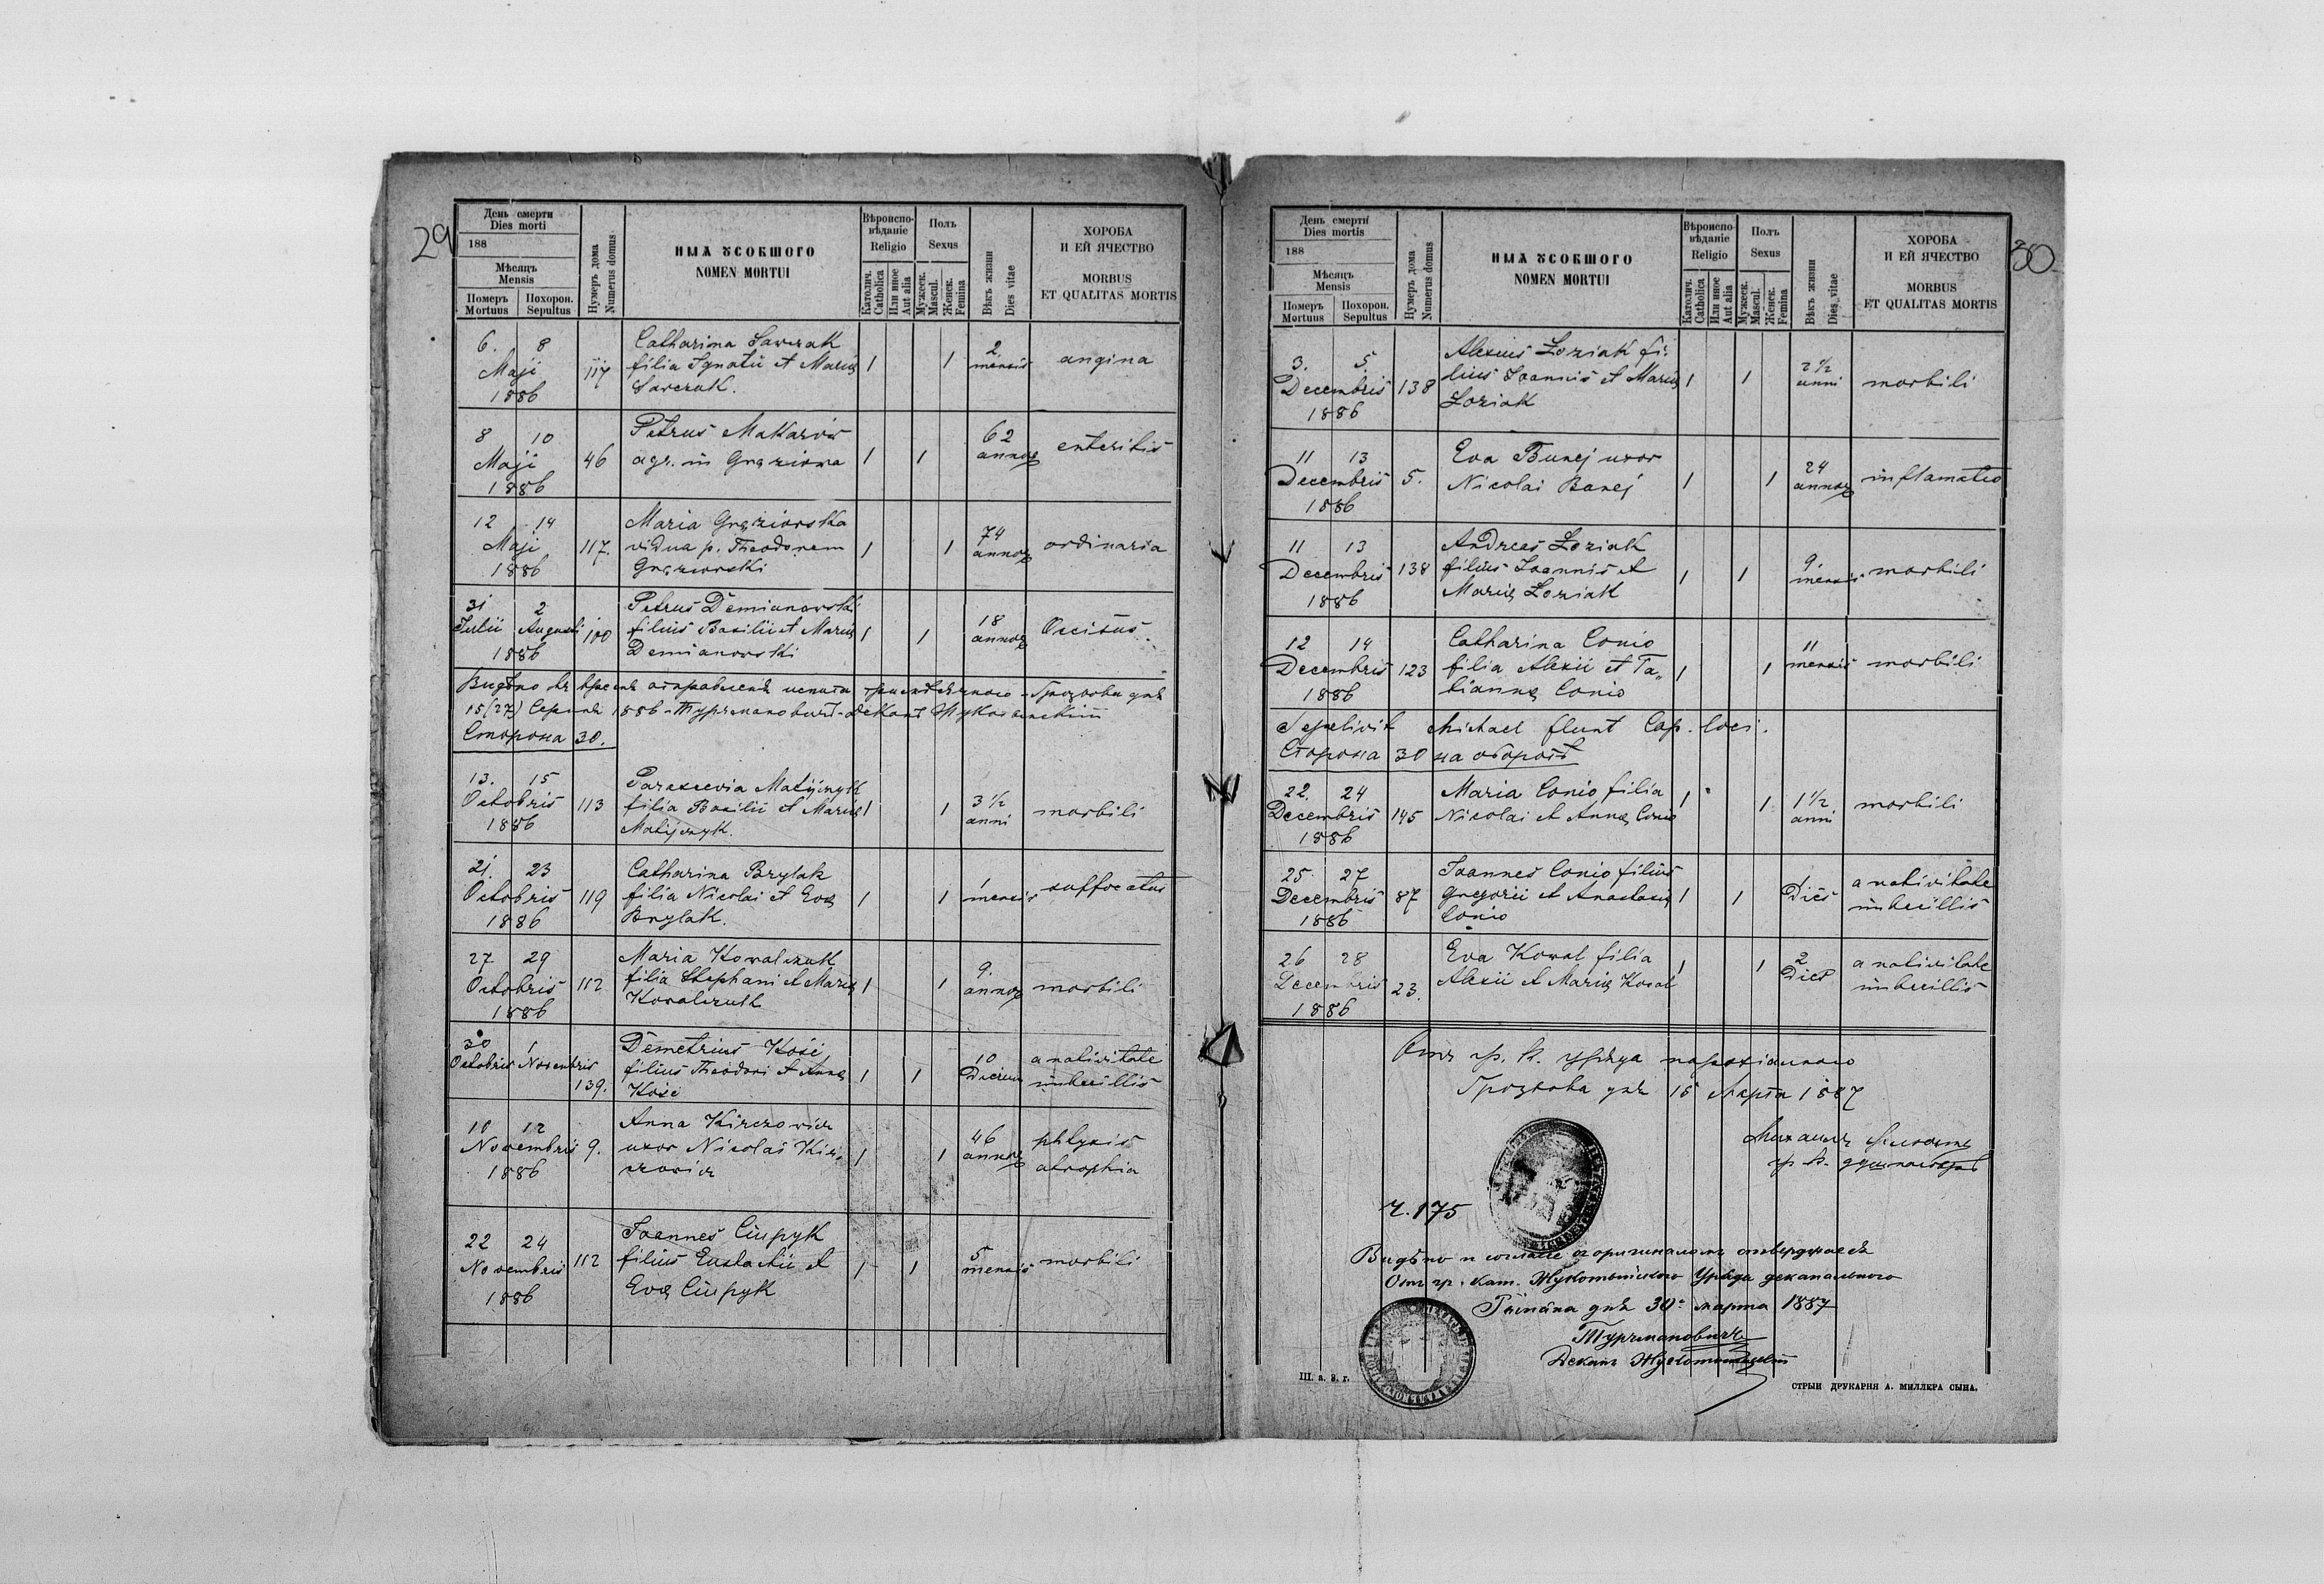 29
День смерти
Dies morti
188
Мѣсяць
Mensis
Померъ
Mortuus
Похорон.
Sepultus
Нумеръ дома
Numerus domus
ИМЯ УСОПШОГО
NOMEN MORTUI
Вѣроиспо-
вѣданіе
Religio
Католич.
Catholica
Или иное
Aut alia
Полъ
Sexus
Мужеск.
Mascul.
Женск.
Femina
Вѣкъ жизни
Dies vitae
ХОРОБА
И ЕЙ ЯЧЕСТВО
MORBUS
ET QUALITAS MORTIS
6. 8
Maji
1886
117
Catharina Sawczak
filia Ignatii et Mariæ
Sawczak.
1 1
2
mensis
angina
8 10
Maji
1886
46
Petrus Makarów
agr. in Grąziowa
1 1
62
annor
enteritis
12 14
Maji
1886
117.
Maria Grąziowska
vidua p. Theodorem
Grąziowski
1 1
74
annor
ordinaria
31 2
Julii Augusti
1886
100
Petrus Demianowski
filius Basilii et Mariæ
Demianowski
1 1
18
annor
Occisus.
15 (27) Серпня 1886
Сторона 30.
13. 15
Octobris
1886
113
Parascevia Matijczyk
filia Basilii et Mariæ
Matijczyk.
1 1
3 1/2
anni
morbili
21. 23
Octobris
1886
119
Catharina Brylak
filia Nicolai et Evæ
Brylak.
1 1
1
mensis
suffocatus
27 29
Octobris
1886
112
Maria Kowalczuk
filia Stephani et Mariæ
Kowalczuk
1 1
9.
annor
morbili
30 1
Octobris Novembris
139.
Demetrius Kość
filius Theodori et Annæ
Kość
1 1
10
Dierum
a nativitate
imbecillis
10 12
Novembris
1886
9.
Anna Kirczowicz
uxor Nicolai Kir-
czowicz
1 1
46
annor
phtysis
atrophia
22 24
Novembris
1886
112
Joannes Ciupyk
filius Eustachii et
Evæ Ciupyk
1 1
5
mensis
morbili
30
День смерти
Dies mortis
188
Мѣсяць
Mensis
Померъ
Mortuus
Похорон.
Sepultus
Нумеръ дома
Numerus domus
ИМЯ УСОПШОГО
NOMEN MORTUI
Вѣроиспо-
вѣданіе
Religio
Католич.
Catholica
Или иное
Aut alia
Полъ
Sexus
Мужеск.
Mascul.
Женск.
Femina
Вѣкъ жизни
Dies vitae
ХОРОБА
И ЕЙ ЯЧЕСТВО
MORBUS
ET QUALITAS MORTIS
3. 5.
Decembris
1886
138
Alexius Łoziak fi-
lius Joannis et Mariæ
Łoziak
1 1
2 1/2
anni
morbili
11 13
Decembris
1886
5.
Eva Bunej uxor
Nicolai Banej
1 1
24
annor
inflamatio
11 13
Decembris
1886
138
Andreas Łoziak
filius Joannis et
Mariæ Łoziak
1 1
9
mensis
morbili
12 14
Decembris
1886
123
Catharina Conio
filia Alexii et Ta-
tiannæ Conio
1 1
11
mensis
morbili
Sepelivit Michael Flunt Cap. loci.
Сторона 30 на оборотѣ
22. 24
Decembris
1886
145
Maria Conio filia
Nicolai et Annæ Conio
1 1
1 1/2
anni
morbili
25. 27
Decembris
1886
87
Joannes Conio filius
Gregorii et Anastasiæ
Conio
1 1
1
Dies
a nativitate
imbecillis
26 28
Decembris
1886
23.
Eva Kowal filia
Alexii et Mariæ Kowal
1 1
2
Dies
a nativitate
imbecillis
Отъ гр. к. уряда парохіального
Грозьова дня 15 Марта 1887
гр к. душпастырь
Ч. 175
Видѣно и согласіе съ оригиналомъ отверджаесь
Отъ гр. кат. Жукотыньского Уряда деканального
дня 30 марта 1887
Турчмановичъ
Деканъ Жукотыньскій
III. а. 3. г.
СТРЫЙ ДРУКАРНЯ А. МИЛЛЕРА СЫНА.